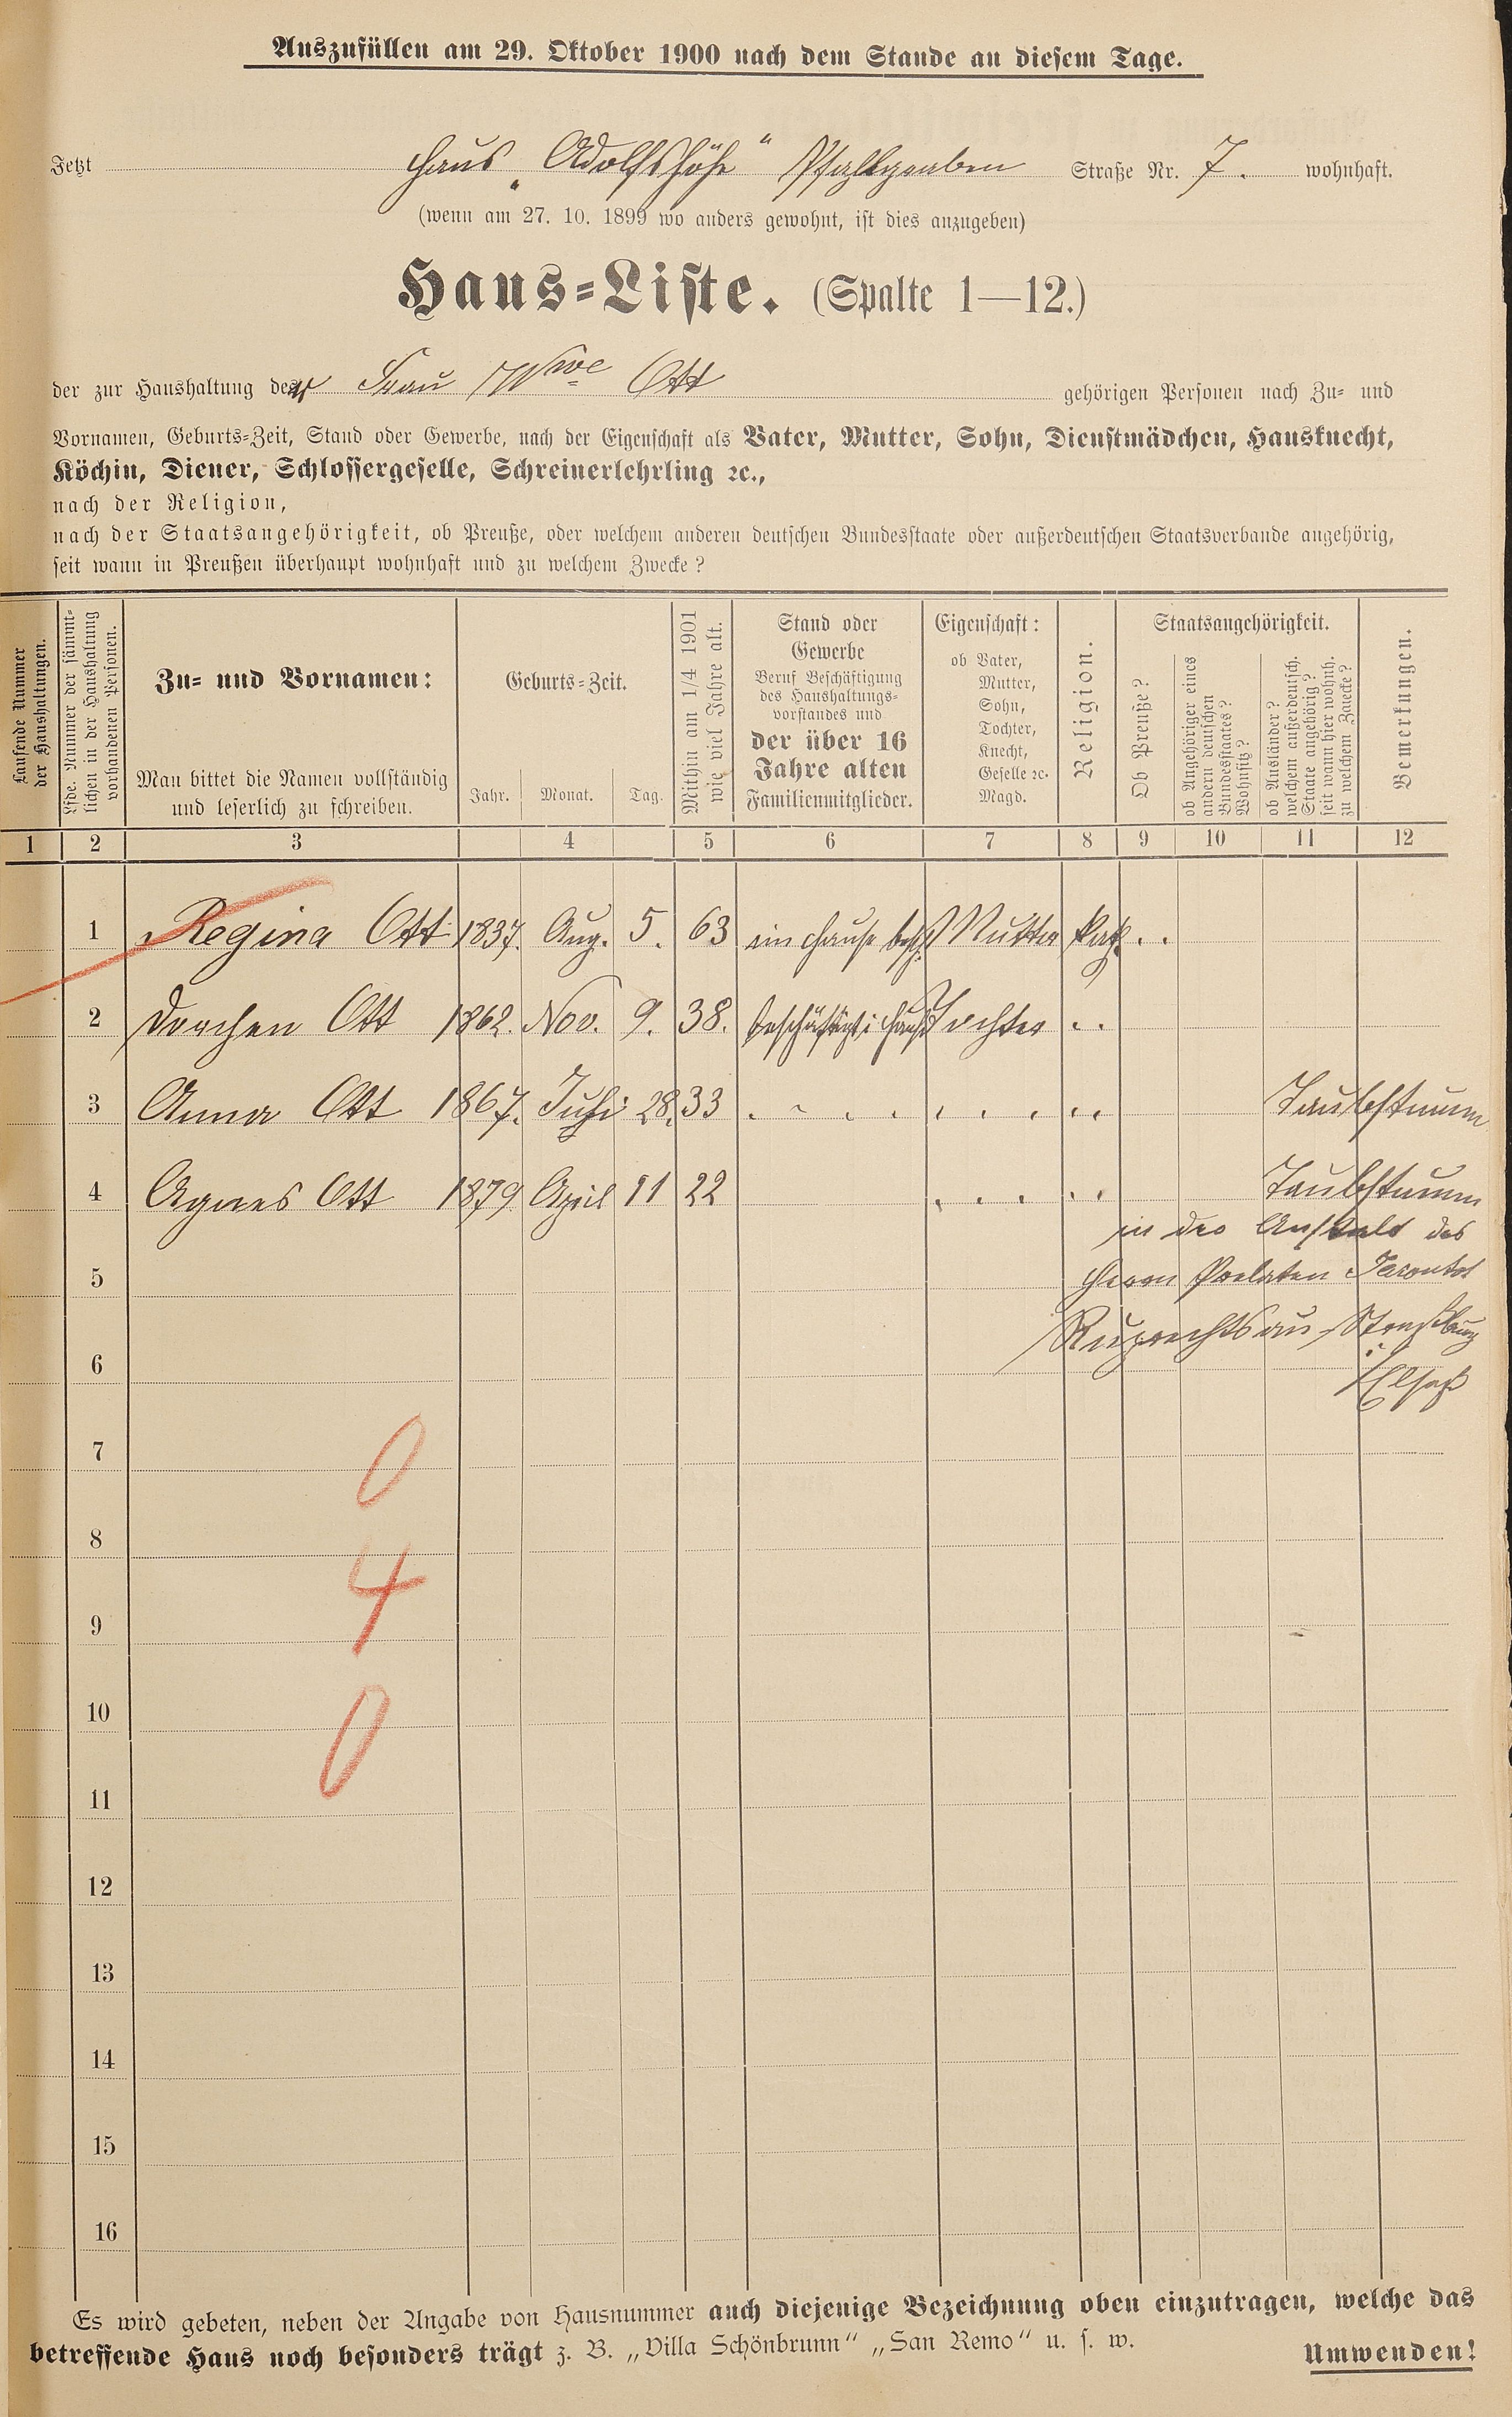 Auszufüllen am 29. Oktober 1900 nach dem Stande an diesem Tage.
Jetzt Haus „Adolfshöhe“ Pfahlgraben Straße Nr. 7. wohnhaft.
(wenn am 27. 10. 1899 wo anders gewohnt, ist dies anzugeben)
Haus-Liste. (Spalte 1—12.)
der zur Haushaltung der Frau Wwe Ott gehörigen Personen nach Zu- und
Vornamen, Geburts-Zeit, Stand oder Gewerbe, nach der Eigenschaft als Vater, Mutter, Sohn, Dienstmädchen, Hausknecht,
Köchin, Diener, Schlossergeselle, Schreinerlehrling ꝛc.,
nach der Religion,
nach der Staatsangehörigkeit, ob Preuße, oder welchem anderen deutschen Bundesstaate oder außerdeutschen Staatsverbande angehörig,
seit wann in Preußen überhaupt wohnhaft und zu welchem Zwecke?
Laufende Nummer
der Haushaltungen.
Lfde. Nummer der sämmt-
lichen in der Haushaltung
vorhandenen Personen.
Zu- und Vornamen:
Man bittet die Namen vollständig
und leserlich zu schreiben.
Geburts-Zeit.
Jahr. Monat. Tag.
Mithin am 1/4 1901
wie viel Jahre alt.
Stand oder
Gewerbe
Beruf Beschäftigung
des Haushaltungs-
vorstandes und
der über 16
Jahre alten
Familienmitglieder.
Eigenschaft:
ob Vater,
Mutter,
Sohn,
Tochter,
Knecht,
Geselle ꝛc.
Magd.
Religion.
Staatsangehörigkeit.
Ob Preuße?
ob Angehöriger eines
andern deutschen
Bundesstaates?
Wohnsitz?
ob Ausländer?
welchem außerdeutsch.
Staate angehörig?
seit wann hier wohnh.
zu welchem Zwecke?
Bemerkungen.
1 2 3 4 5 6 7 8 9 10 11 12
1 Regina Ott 1837. Aug. 5. 63 im Hause besch. Mutter kath. . .
2 Dorchen Ott 1862. Nov. 9. 38. beschäftigt i Hause Tochter . .
3 Anna Ott 1867. Juli 28. 33 . . . . . . . . . Taubstumm
4 Agnes Ott 1879 April 11 22 . . . . . Taubstumm
in der Anstalt des
5 Herrn Prelaten
6 Ruprechtsau Straßburg
i Elsaß
7
0
8
4
9
10
0
11
12
13
14
15
16
Es wird gebeten, neben der Angabe von Hausnummer auch diejenige Bezeichnung oben einzutragen, welche das
betreffende Haus noch besonders trägt z. B. „Villa Schönbrunn“ „San Remo“ u. s. w.
Umwenden!